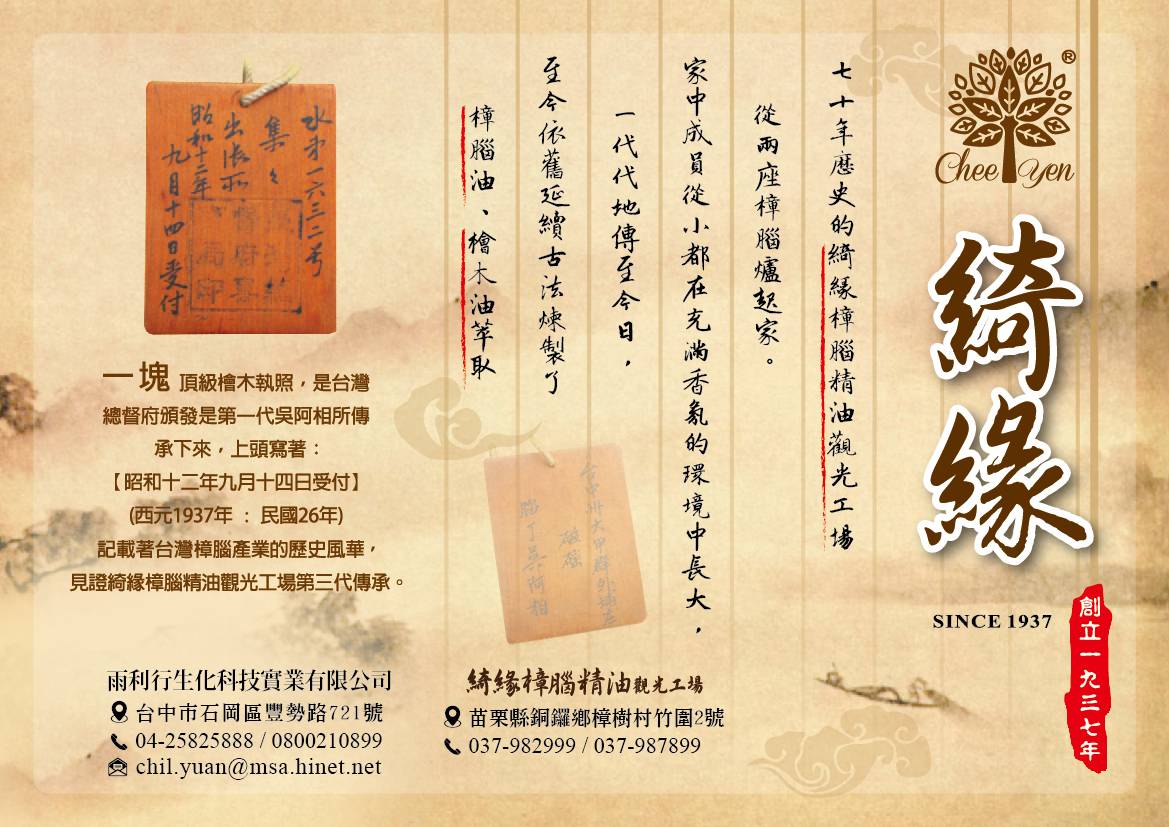 Chee Yen
®
綺緣
SINCE 1937
創立一九三七年
七十年歷史的綺緣樟腦精油觀光工場
從兩座樟腦爐起家。
家中成員從小都在充滿香氣的環境中長大，
一代代地傳至今日，
至今依舊延續古法煉製了
樟腦油、檜木油萃取
水第一六三二号
集々
出張所
昭和十二年
九月十四日受付
一塊 頂級檜木執照，是台灣
總督府頒發是第一代吳阿相所傳
承下來，上頭寫著：
【昭和十二年九月十四日受付】
(西元1937年 : 民國26年)
記載著台灣樟腦產業的歷史風華，
見證綺緣樟腦精油觀光工場第三代傳承。
台中州大甲郡外埔庄
腦丁吳阿相
雨利行生化科技實業有限公司
台中市石岡區豐勢路721號
04-25825888 / 0800210899
chil.yuan@msa.hinet.net
綺緣樟腦精油觀光工場
苗栗縣銅鑼鄉樟樹村竹圍2號
037-982999 / 037-987899